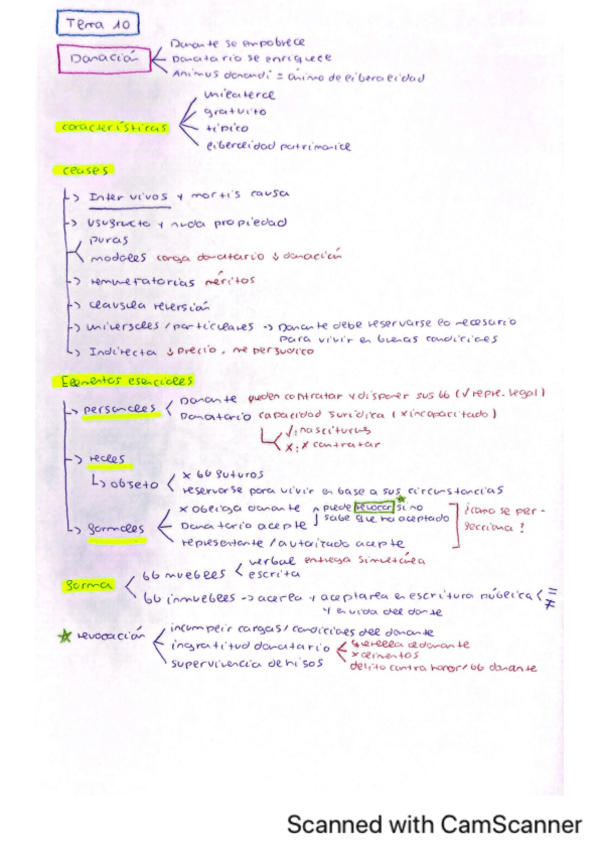 Tema 10
Donación
Donante se empobrece
Donatario se enriquece
Animus donandi = ánimo de liberalidad
características
unilateral
gratuito
típico
liberalidad patrimonial
clases
-> Inter vivos y mortis causa
-> usufructo y nuda propiedad
puras
modales carga donatario ↓ donación
-> remuneratorias méritos
-> clausula reversión
-> universales / particulares -> Donante debe reservarse lo necesario
para vivir en buenas condiciones
-> Indirecta ↓ precio, me perjudico
Elementos esenciales
-> personales
Donante pueden contratar y disponer sus bb (√ repre. legal)
Donatario capacidad jurídica (x incapacitado)
√: nasciturus
x: x contratar
-> reales
-> objeto
x bb futuros
reservarse para vivir en base a sus circunstancias
-> formales
x obliga donante
Donatario acepte
puede revocar si no
sabe que ha aceptado
representante / autorizado acepte
¿cómo se per-
fecciona?
forma
bb muebles
verbal entrega simultánea
escrita
bb inmuebles -> acerla y aceptarla en escritura pública < = ≠
y en vida del donte
revocación
incumplir cargas / condiciones del donante
ingratitud donatario
querella al donante
x alimentos
delito contra honor / bb donante
supervivencia de hijos
Scanned with CamScanner